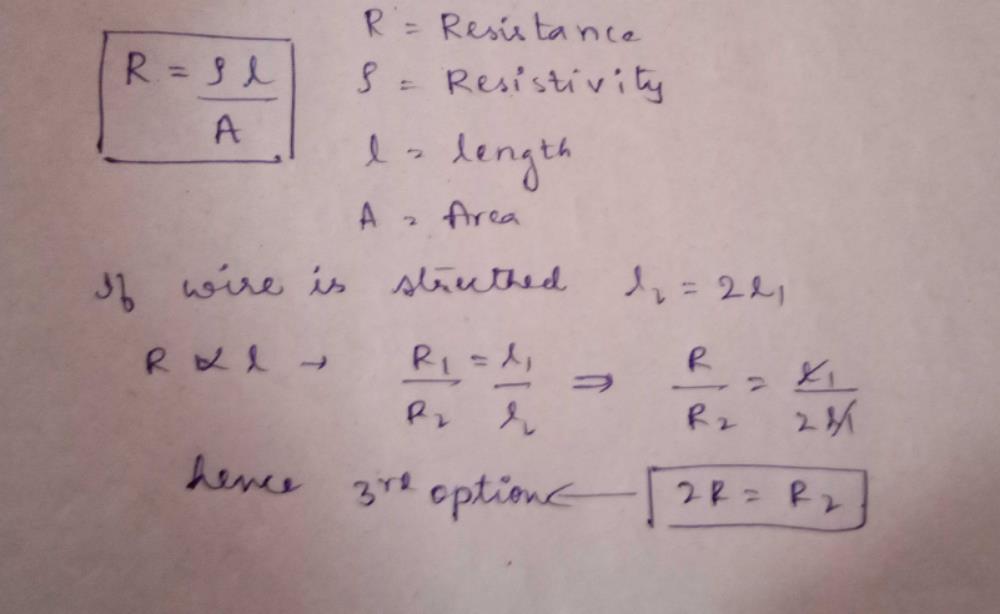 R = Resistance
R = ρl/A
ρ = Resistivity
l = length
A = Area
If wire is streethed l₂ = 2l₁
R ∝ l → R₁/R₂ = l₁/l₂ ⇒ R/R₂ = l₁/2l₁
hence 3rd option ← 2R = R₂